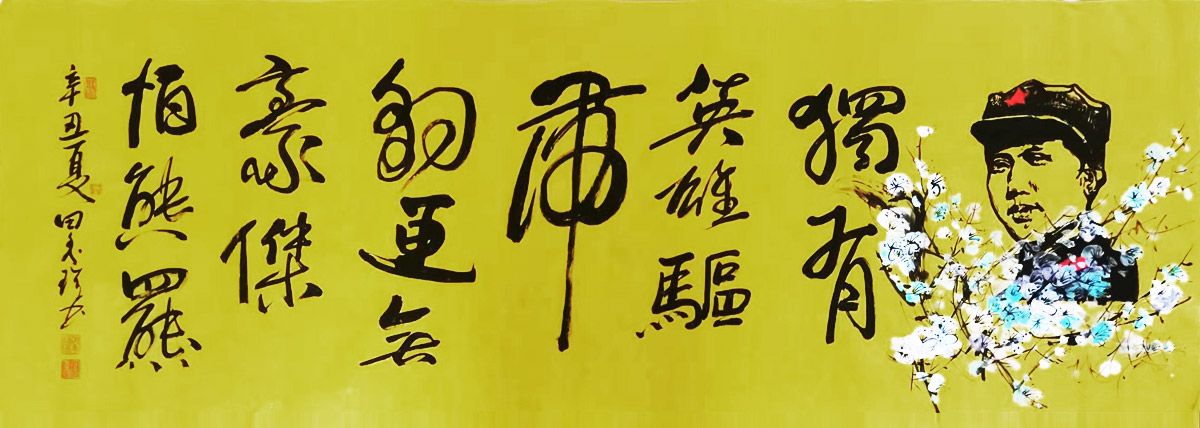 獨有
英雄驅
虎
豹更無
豪傑
怕熊羆
辛丑夏田